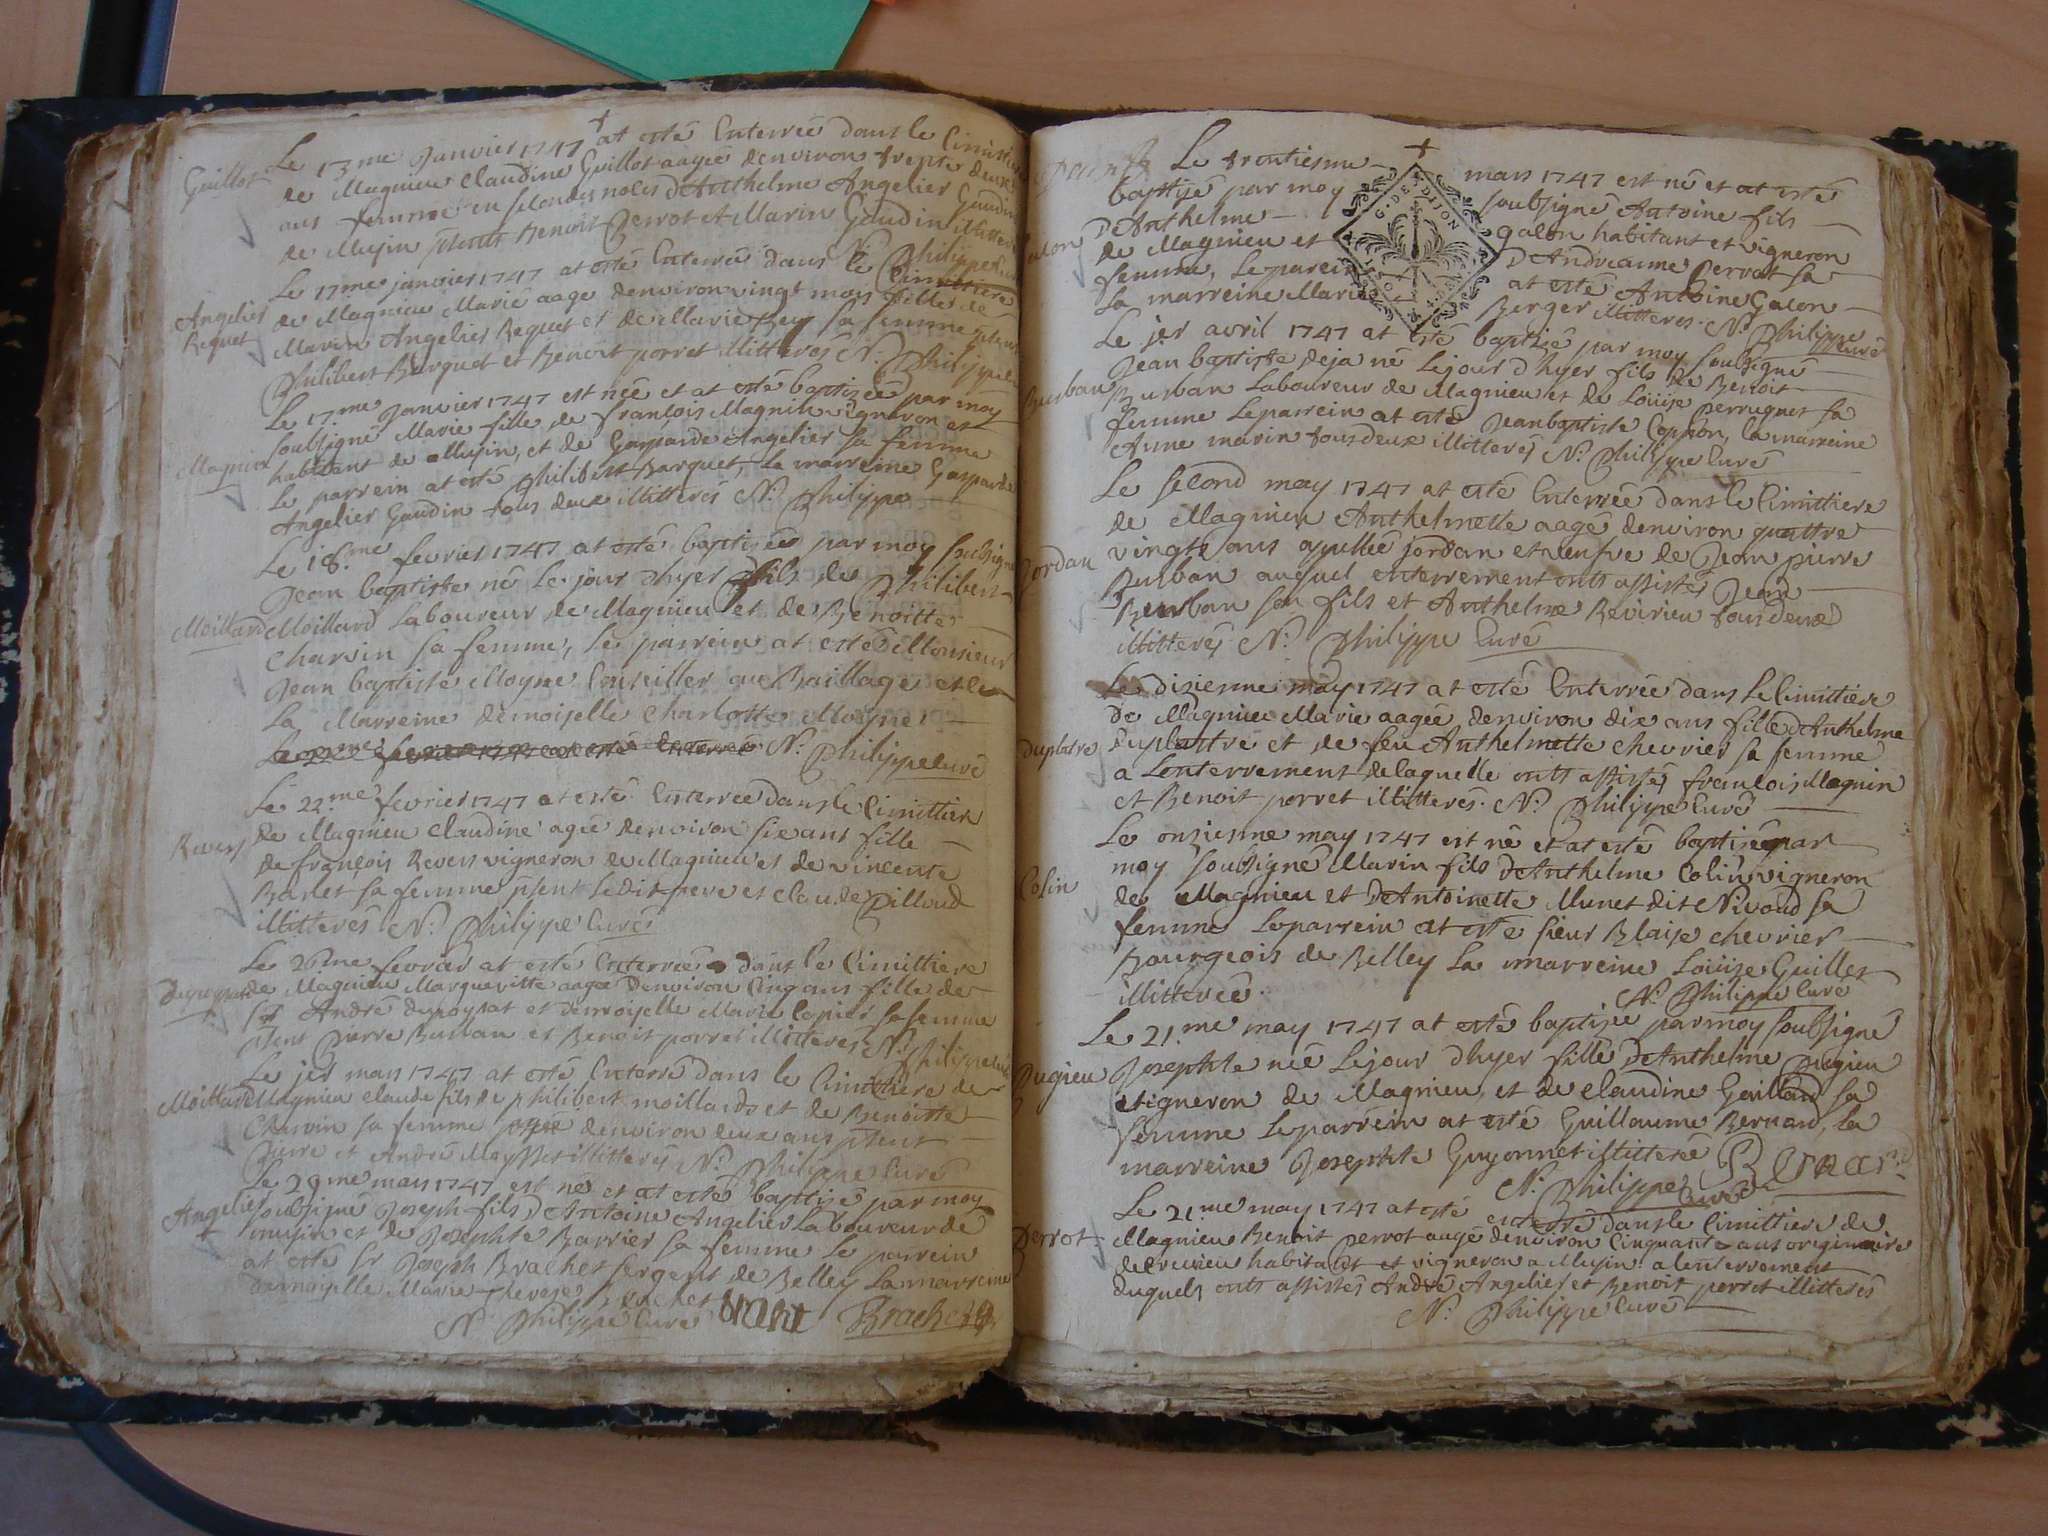 Guillot
Le 13me Janvier 1747 at esté Enterreé dans le Cimittiere
de Magnieu Claudine Guillot aageé denviron trente deux
ans femme en secondes noces D'Anthelme Angelier Gaudin
de Musin Benoit Perrot et Marin Gaudin illitteres
N. Philippe Curé
Angelier
Reguet
Le 17me janvier 1747 at esté Enterreé dans le Cimittiere
de Magnieu Marie aage denviron vingt mois fille de
Marin Angelier Reguet et de Marie Rey sa femme
Philibert Barquet et Benoit porret illitterés N. Philippe
Magnin
Le 17.me Janvier 1747 est neé et at esté baptizeé par moy
soubsigné Marie fille de françois Magnin vigneron et
habitant de Musin, et de Gasparde Angelier sa femme
Le parrein at esté philibert Barquet, La marreine Gasparde
Angelier Gaudin tous deux illitterés N. Philippe
Moillard
Le 18.me fevrier 1747 at esté baptizé par moy soubsigné
Jean baptiste né Le jour dhyer fils de Philibert
Moillard Laboureur de Magnieu et de Benoitte
Charvin sa femme, Le parrein at esté Monsieur
Jean baptiste Moyne Conseiller au Baillage et
La Marreine demoiselle Charlotte Moyne
N. Philippe curé
Revers
Le 22me fevrier 1747 at esté Enterreé dans le Cimittiere
de Magnieu Claudine ageé denviron six ans fille
de françois Revers vigneron de Magnieu et de vincente
Barlet sa femme psent Ledit pere et Claude Pilloud
illitterés N. Philippe Curé
Le 26me fevrier at esté Enterreé dans le Cimittiere
de Magnieu Margueritte aageé denviron Cinq ans fille de
Sr André dupoysat et demoiselle Marie Copier sa femme
psent Pierre Burban et Benoit porret illitterés N. Philippe curé
Moillard
Le jer mars 1747 at esté Enterré dans le Cimittiere de
Magnieu Claude fils de philibert moillard et de Benoitte
Charvin sa femme denviron deux ans psent
Pierre et André illitterés N. Philippe Curé
Angelier
Le 29me mars 1747 est né et at esté baptisé par moy
soubsigné Joseph fils D'Antoine Angelier Laboureur de
musin et de Josephte Barrier sa femme Le parrein
at esté Sr Joseph Brachet sergent de Belley La marreine
demoiselle Marie therese Brachet
N. Philippe Curé Brachet
Le trentiesme mars 1747 est né et at esté
baptizé par moy soubsigné Antoine fils
D'Anthelme Galon habitant et vigneron
de Magnieu et D'Andreanne Perrot sa
femme, Le parein at esté Antoine Galon
La marreine Marie Berger illitteres. N. Philippe
Curé
G. DE DIJON
Burban
Le jer avril 1747 at esté baptizé par moy soubsigné
Jean baptiste deja né Le jour dhyer fils de Benoit
Burban Laboureur de Magnieu et de Loüise Perruquet sa
femme Le parrein at esté Jean baptiste Coppion, La marreine
Anne marin tous deux illitterés N. Philippe Curé
Jordan
Le second may 1747 at esté Enterreé dans le Cimittiere
de Magnieu Anthelmette aageé denviron quattre
vingts ans apelleé jordan et veufve de Jean pierre
Burban auquel enterrement onts assistés Jean
Burban son fils et Anthelme Revirieu tous deux
illitterés N. Philippe Curé
duplatre
Le diziesme may 1747 at esté Enterreé dans Le Cimittiere
De Magnieu Marie aageé denviron dix ans fille d'Anthelme
duplattre et de feu Anthelmette Chevrier sa femme
a Lenterrement de laquelle onts assistés françois Magnin
et Benoit porret illitterés. N. Philippe Curé
Colin
Le onziesme may 1747 est né et at esté baptisé par
moy soubsigné Marin fils D'Anthelme Colin vigneron
de Magnieu et D'Antoinette Munet dit Nivoud sa
femme Le parrein at esté sieur Blaise Chevrier
Bourgeois de Belley La marreine Loüise Guillet
illittereé.
N. Philippe Curé
Pugieu
Le 21.me may 1747 at esté baptizeé par moy soubsigné
Josephte neé Le jour dhyer fille D'Anthelme Pugieu
vigneron de Magnieu, et de Claudine Gaillard sa
femme Le parrein at esté Guillaume Bernard, La
marreine Josephte Guyonnet illittereé Bernard
N. Philippe Curé
Perrot
Le 21me may 1747 at esté enterré dans le Cimittiere de
Magnieu Benoit Perrot aagé denviron Cinquante ans originaire
habitant et vigneron a Musin a lenterrement
duquel onts assistés André Angelier et Benoit porret illitterés
N. Philippe Curé